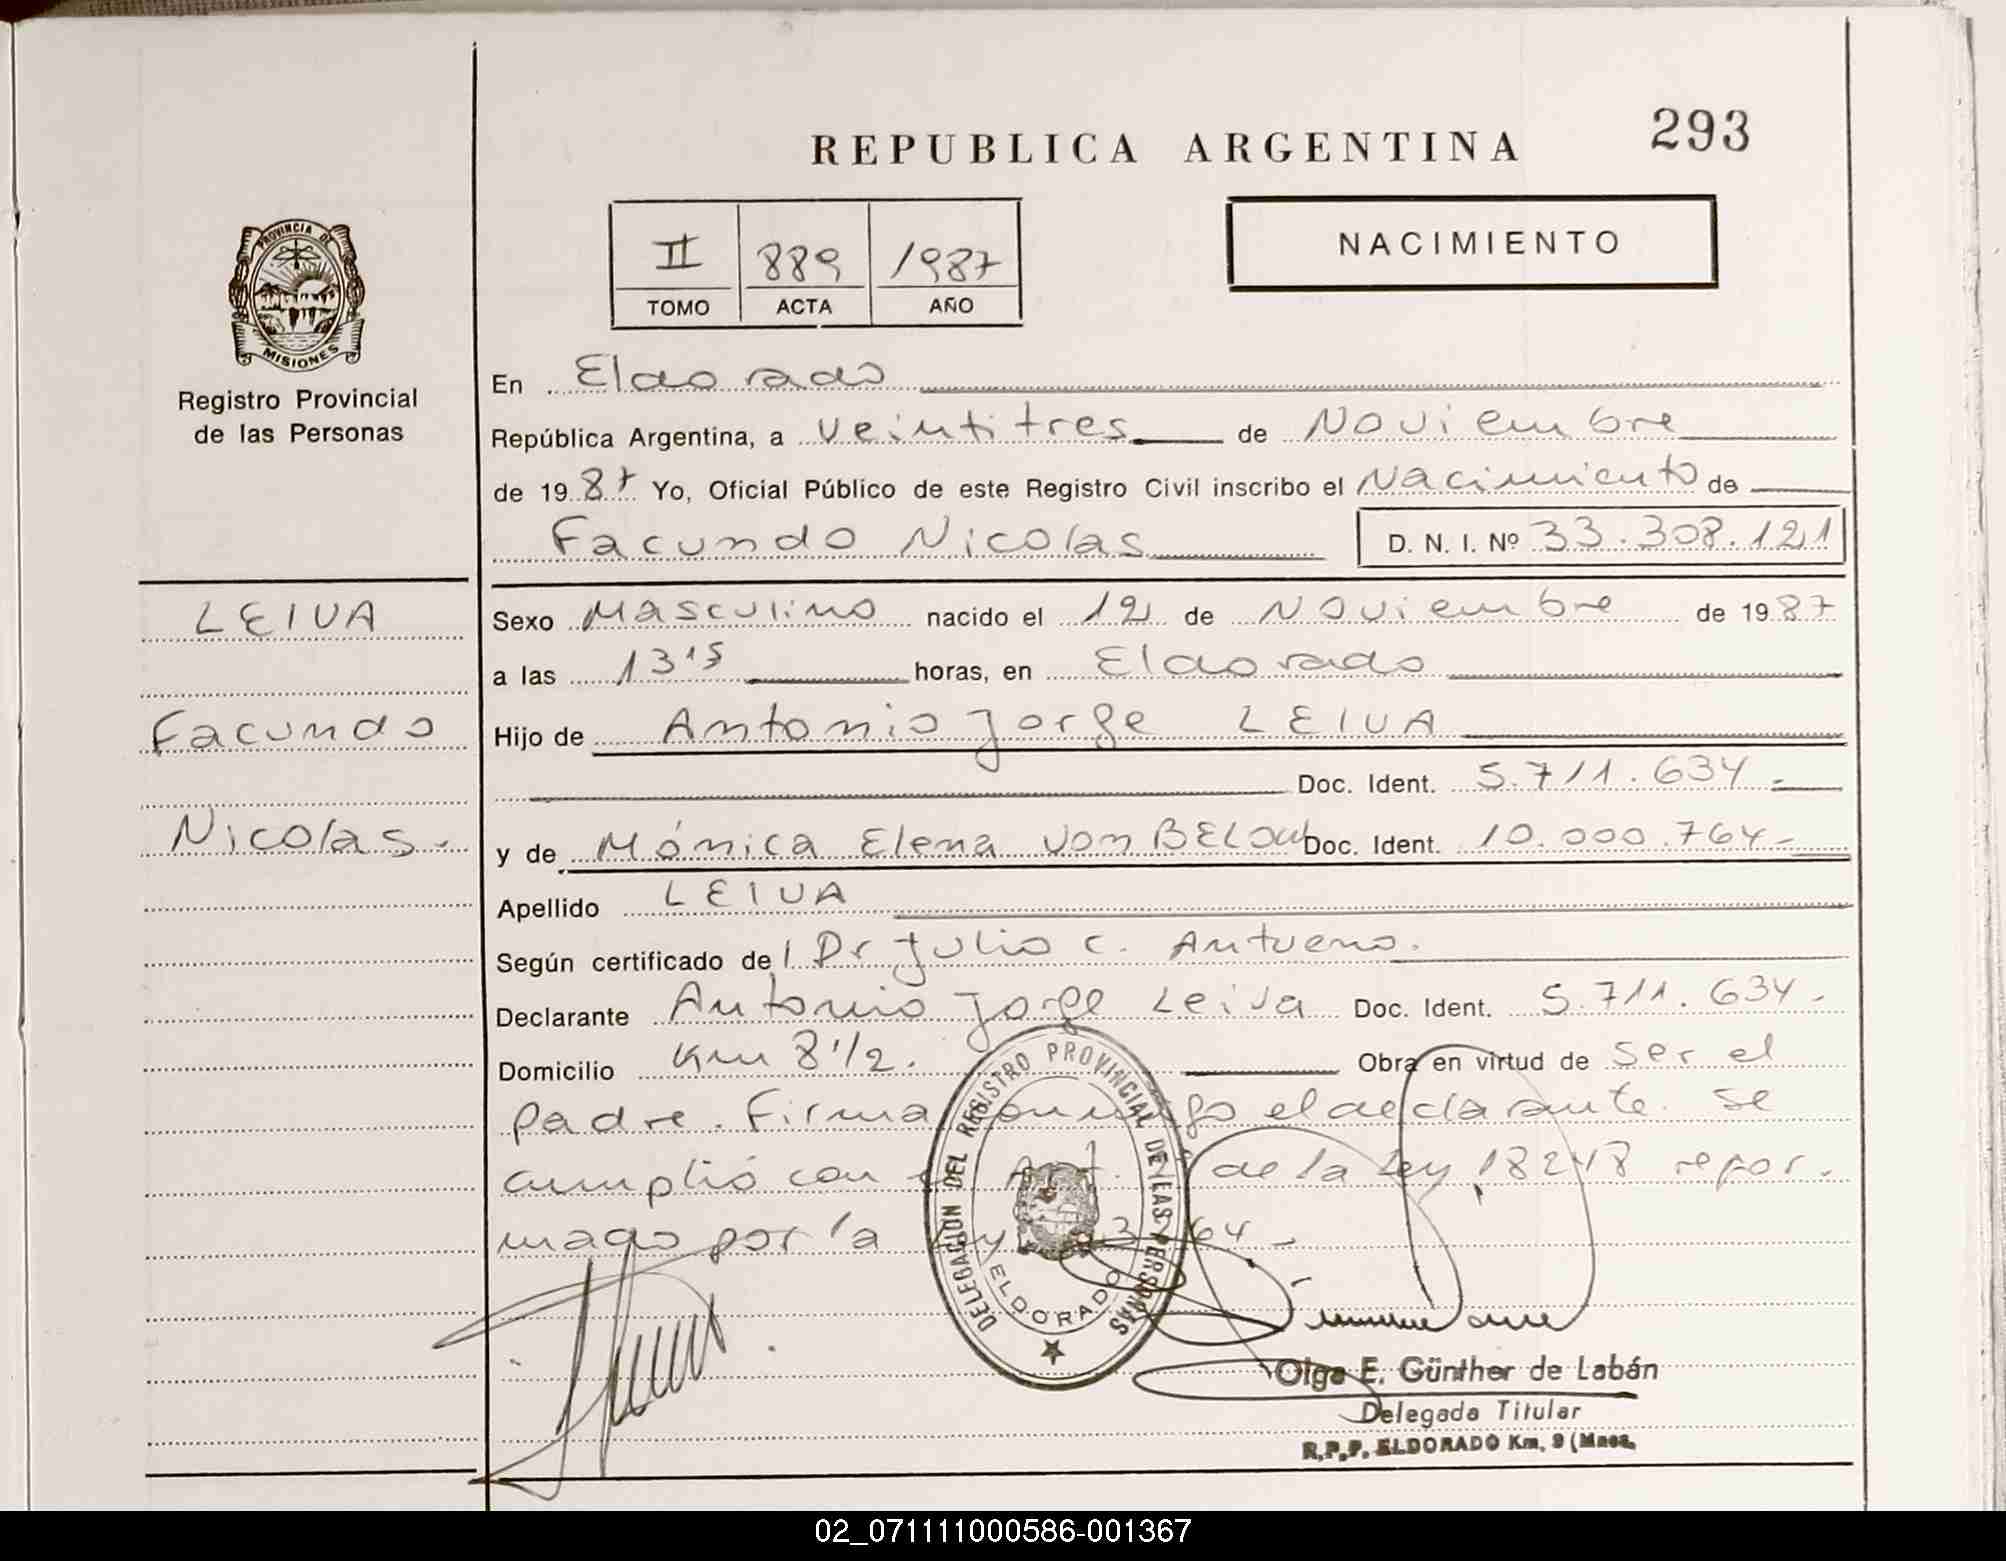 REPUBLICA ARGENTINA
293
II 889 1987
TOMO ACTA AÑO
NACIMIENTO
PROVINCIA DE
MISIONES
Registro Provincial
de las Personas
En Eldorado
República Argentina, a veintitres de Noviembre
de 1987 Yo, Oficial Público de este Registro Civil inscribo el Nacimiento de
Facundo Nicolas D. N. I. Nº 33.308.121
LEIVA
Facundo
Nicolas.-
Sexo Masculino nacido el 12 de Noviembre de 1987
a las 13'5 horas, en Eldorado
Hijo de Antonio Jorge LEIVA
Doc. Ident. 5.711.634.-
y de Mónica Elena von BELOW Doc. Ident. 10.000.764.-
Apellido LEIVA
Según certificado de Dr Julio C.
Declarante Antonio Jorge Leiva Doc. Ident. 5.711.634.-
Domicilio Km 8 1/2. Obra en virtud de ser el
padre. Firma conmigo el declarante. Se
cumplió con el Art. de la Ley 18248 refor-
mado por la Ley
DELEGACION DEL REGISTRO PROVINCIAL DE LAS PERSONAS
ELDORADO
Olga E. Günther de Labán
Delegada Titular
R.P.P. ELDORADO Km. 9 (Mnes.
02_071111000586-001367